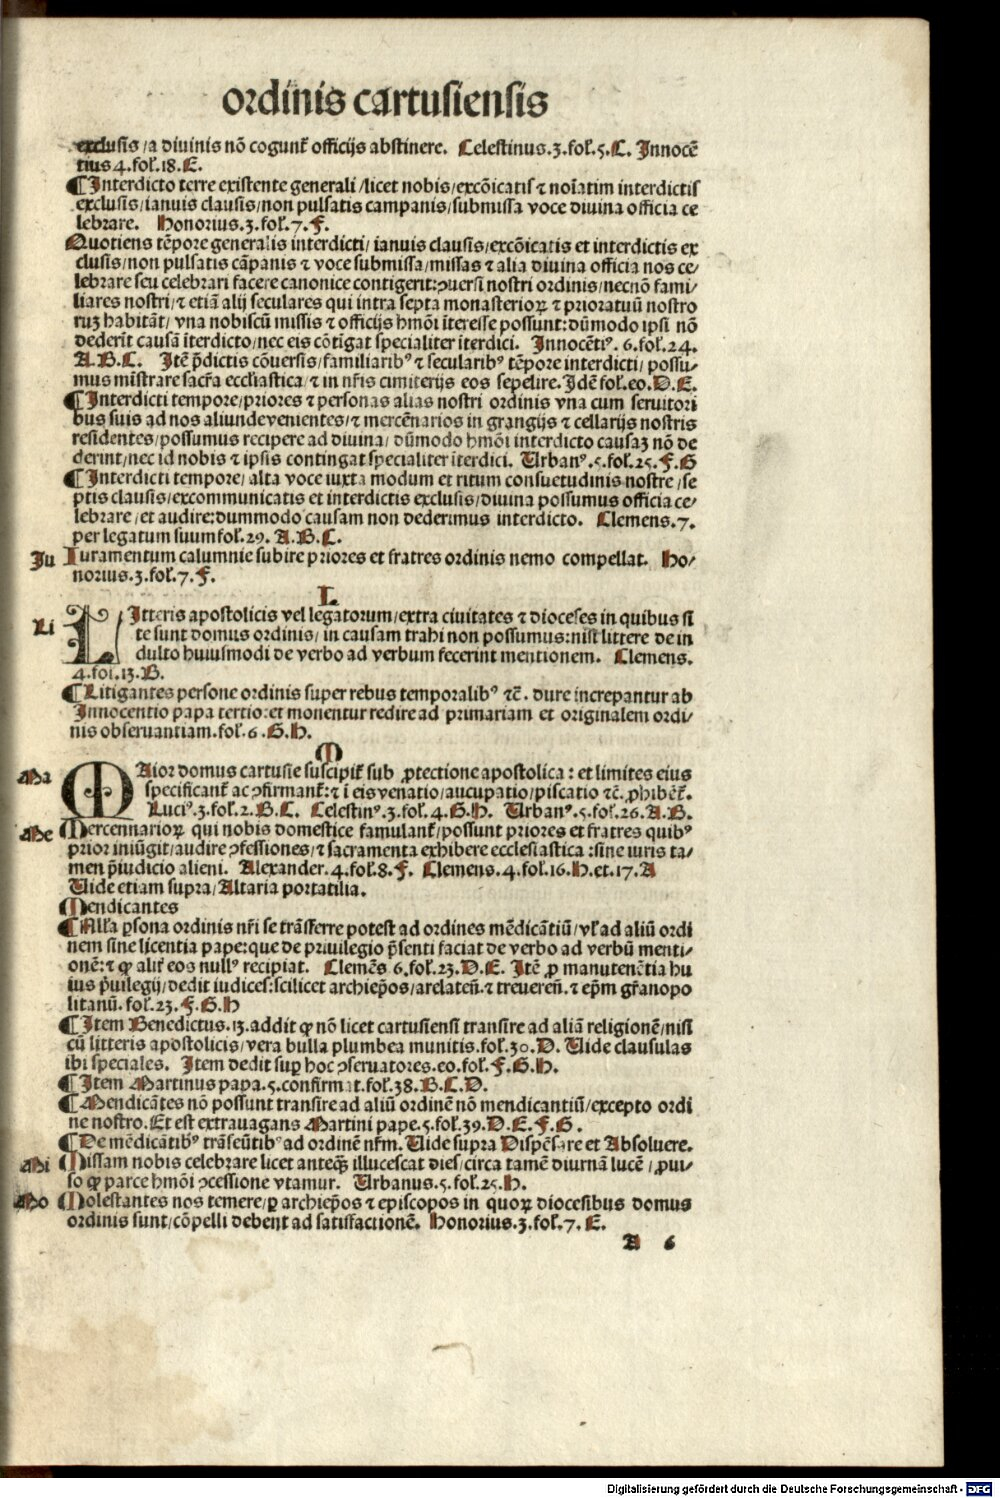 ordinis cartusiensis
exclusis/a diuinis nō cogunt̄ officijs abstinere. Celestinus.3.fol̄.5.C. Innocē
tius 4.fol̄.18.E.
¶Interdicto terre existente generali/licet nobis/excōicatis ⁊ noīatim interdictis
exclusis/ianuis clausis/non pulsatis campanis/submissa voce diuina officia ce
lebrare. Honorius.3.fol̄.7.F.
Quotiens tēpore generalis interdicti/ianuis clausis/excōicatis et interdictis ex
clusis/non pulsatis cāpanis ⁊ voce submissa/missas ⁊ alia diuina officia nos ce/
lebrare seu celebrari facere canonice contigerit:ꝯuersi nostri ordinis/necnō fami/
liares nostri/⁊ etiā alij seculares qui intra septa monasterioꝝ ⁊ prioratuū nostro
ruꝫ habitāt/vna nobiscū missis ⁊ officijs hmōi īteresse possunt:dūmodo ipsi nō
dederīt causā īterdicto/nec eis cōtīgat specialiter īterdici. Innocētiꝰ.6.fol̄.24.
A.B.C. Itē p̄dictis cōuersis/familiaribꝰ ⁊ secularibꝰ tēpore interdicti/possu/
mus mīstrare sacr̄a eccl̄iastica/⁊ in nr̄is cimiterijs eos sepelire.Idē fol̄.eo.D.E.
¶Interdicti tempore/priores ⁊ personas alias nostri ordinis vna cum seruitori
bus suis ad nos aliunde venientes/⁊ mercēnarios in grangijs ⁊ cellarijs nostris
residentes/possumus recipere ad diuina/dūmodo hmōi interdicto causaꝫ nō de
derint/nec id nobis ⁊ ipsis contingat specialiter īterdici. Urbanꝰ.5.fol̄.25.F.G
¶Interdicti tempore/alta voce iuxta modum et ritum consuetudinis nostre/se
ptis clausis/excommunicatis et interdictis exclusis/diuina possumus officia ce/
lebrare/et audire:dummodo causam non dederimus interdicto. Clemens.7.
per legatum suum fol̄.29. A.B.C.
Ju Iuramentum calumnie subire priores et fratres ordinis nemo compellat. Ho/
norius.3.fol̄.7.F.
L
Li LItteris apostolicis vel legatorum/extra ciuitates ⁊ dioceses in quibus si
te sunt domus ordinis/in causam trahi non possumus:nisi littere de in
dulto huiusmodi de verbo ad verbum fecerint mentionem. Clemens.
4.fol̄.13.B.
¶Litigantes persone ordinis super rebus temporalibꝰ ⁊c̄. dure increpantur ab
Innocentio papa tertio:et monentur redire ad primariam et originalem ordi/
nis obseruantiam.fol̄.6.G.H.
M
Ma MAior domus cartusie suscipit̄ sub ꝓtectione apostolica: et limites eius
specificant̄ ac ꝯfirmant̄:⁊ ī eis venatio/aucupatio/piscatio ⁊c̄.ꝓhibēt̄.
Luciꝰ.3.fol̄.2.B.C. Celestinꝰ.3.fol̄.4.G.H. Urbanꝰ.5.fol̄.26.A.B.
Me Mercennarioꝝ qui nobis domestice famulant̄/possunt priores et fratres quibꝰ
prior iniūgit/audire ꝯfessiones/⁊ sacramenta exhibere ecclesiastica:sine iuris ta/
men p̄iudicio alieni. Alexander.4.fol̄.8.F. Clemens.4.fol̄.16.H.et.17.A
Uide etiam supra/Altaria portatilia.
Mendicantes
¶Null̄a ꝑsona ordinis nr̄i se trāsferre potest ad ordines mēdicātiū/vl̄ ad aliū ordi
nem sine licentia pape:que de priuilegio p̄senti faciat de verbo ad verbū menti/
onē:⁊ ꝙ alit̄ eos nullꝰ recipiat. Clemēs 6.fol̄.23.D.E. Itē ꝓ manutenētia hu
ius p̄uilegij/dedit iudices:scilicet archiep̄os/arelateñ.⁊ treuereñ.⁊ ep̄m gr̄anopo
litanū.fol̄.23.F.G.H
¶Item Benedictus.13.addit ꝙ nō licet cartusiensi transire ad aliā religionē/nisi
cū litteris apostolicis/vera bulla plumbea munitis.fol̄.30.D. Uide clausulas
ibi speciales. Item dedit suꝑ hoc ꝯseruatores.eo.fol̄.F.G.H.
¶Item Martinus papa.5.confirmat.fol̄.38.B.C.D.
¶Mendicātes nō possunt transire ad aliū ordinē nō mendicantiū/excepto ordi
ne nostro.Et est extrauagans Martini pape.5.fol̄.39.D.E.F.G.
¶De mēdicātibꝰ trāseūtibꝰ ad ordinē nr̄m.Uide supra Dispēsare et Absoluere.
Mi Missam nobis celebrare licet anteqꝫ illucescat dies/circa tamē diurnā lucē/ꝓui/
so ꝙ parce hmōi ꝯcessione vtamur. Urbanus.5.fol̄.25.H.
Mo Molestantes nos temere/ꝑ archiep̄os ⁊ episcopos in quoꝝ diocesibus domus
ordinis sunt/cōpelli debent ad satisfactionē. Honorius.3.fol̄.7.E.
A 6
Digitalisierung gefördert durch die Deutsche Forschungsgemeinschaft - DFG